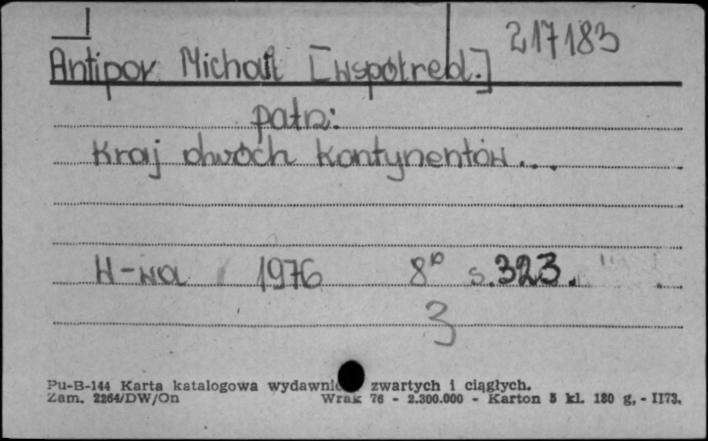 217183
Antipov Michaił [współred.]
patrz:
Kraj dwóch kontynentów...
W-wa 1976 8° s. 323.
3
Pu-B-144 Karta katalogowa wydawnic zwartych i ciągłych.
Zam. 2264/DW/On Wrak 76 - 2.300.000 - Karton 5 kl. 180 g. - II73.